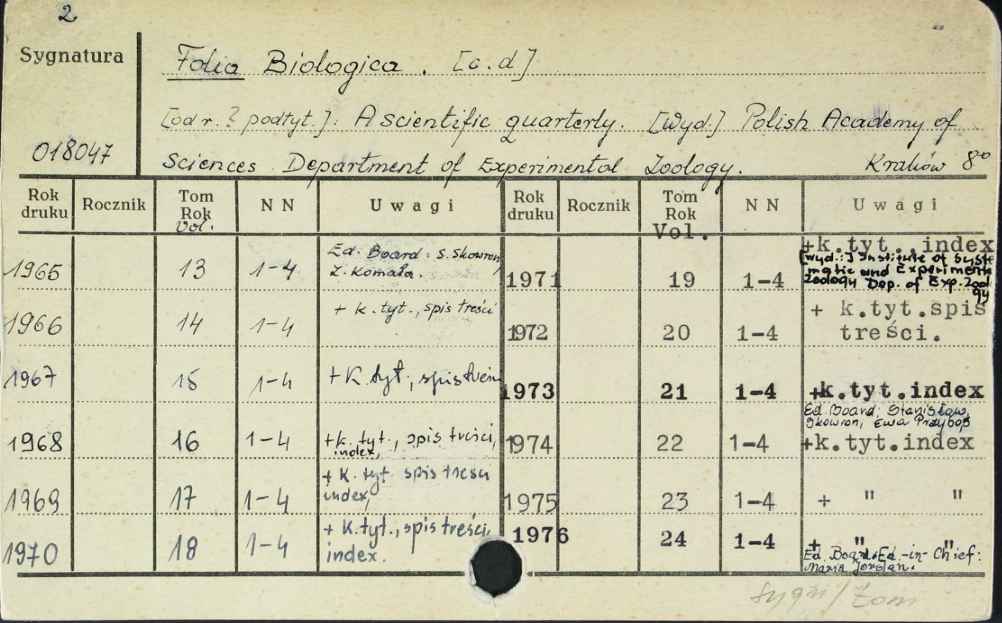 2
Sygnatura
Folia Biologica. [c.d]
[od r. ? podtyt.]: A scientific quarterly. [Wyd.] Polish Academy of
018047 Sciences Department of Experimental Zoology. Kraków 8°
Rok druku Rocznik Tom Rok Vol. NN Uwagi Rok druku Rocznik Tom Rok Vol. NN Uwagi
1965 13 1-4 Ed. Board: S. Skowron, Z. Komała.
1966 14 1-4 + k. tyt., spis treści
1967 15 1-4 + K. tyt., spis treści
1968 16 1-4 + k. tyt., spis treści, index,
1969 17 1-4 + k. tyt. spis treści index,
1970 18 1-4 + K. tyt., spis treści, index.
1971 19 1-4 +k.tyt., index
[Wyd.:] Institute of Systematic and Experimental Zoology Dep. of Exp. Zoology
1972 20 1-4 + k.tyt.spis treści.
1973 21 1-4 +k.tyt.index
Ed. Board: Stanisław Skowron, Ewa Przyboś
1974 22 1-4 +k.tyt.index
1975 23 1-4 + " "
1976 24 1-4 + " "
Ed. Board: Ed.-in-Chief: Maria Jordan.